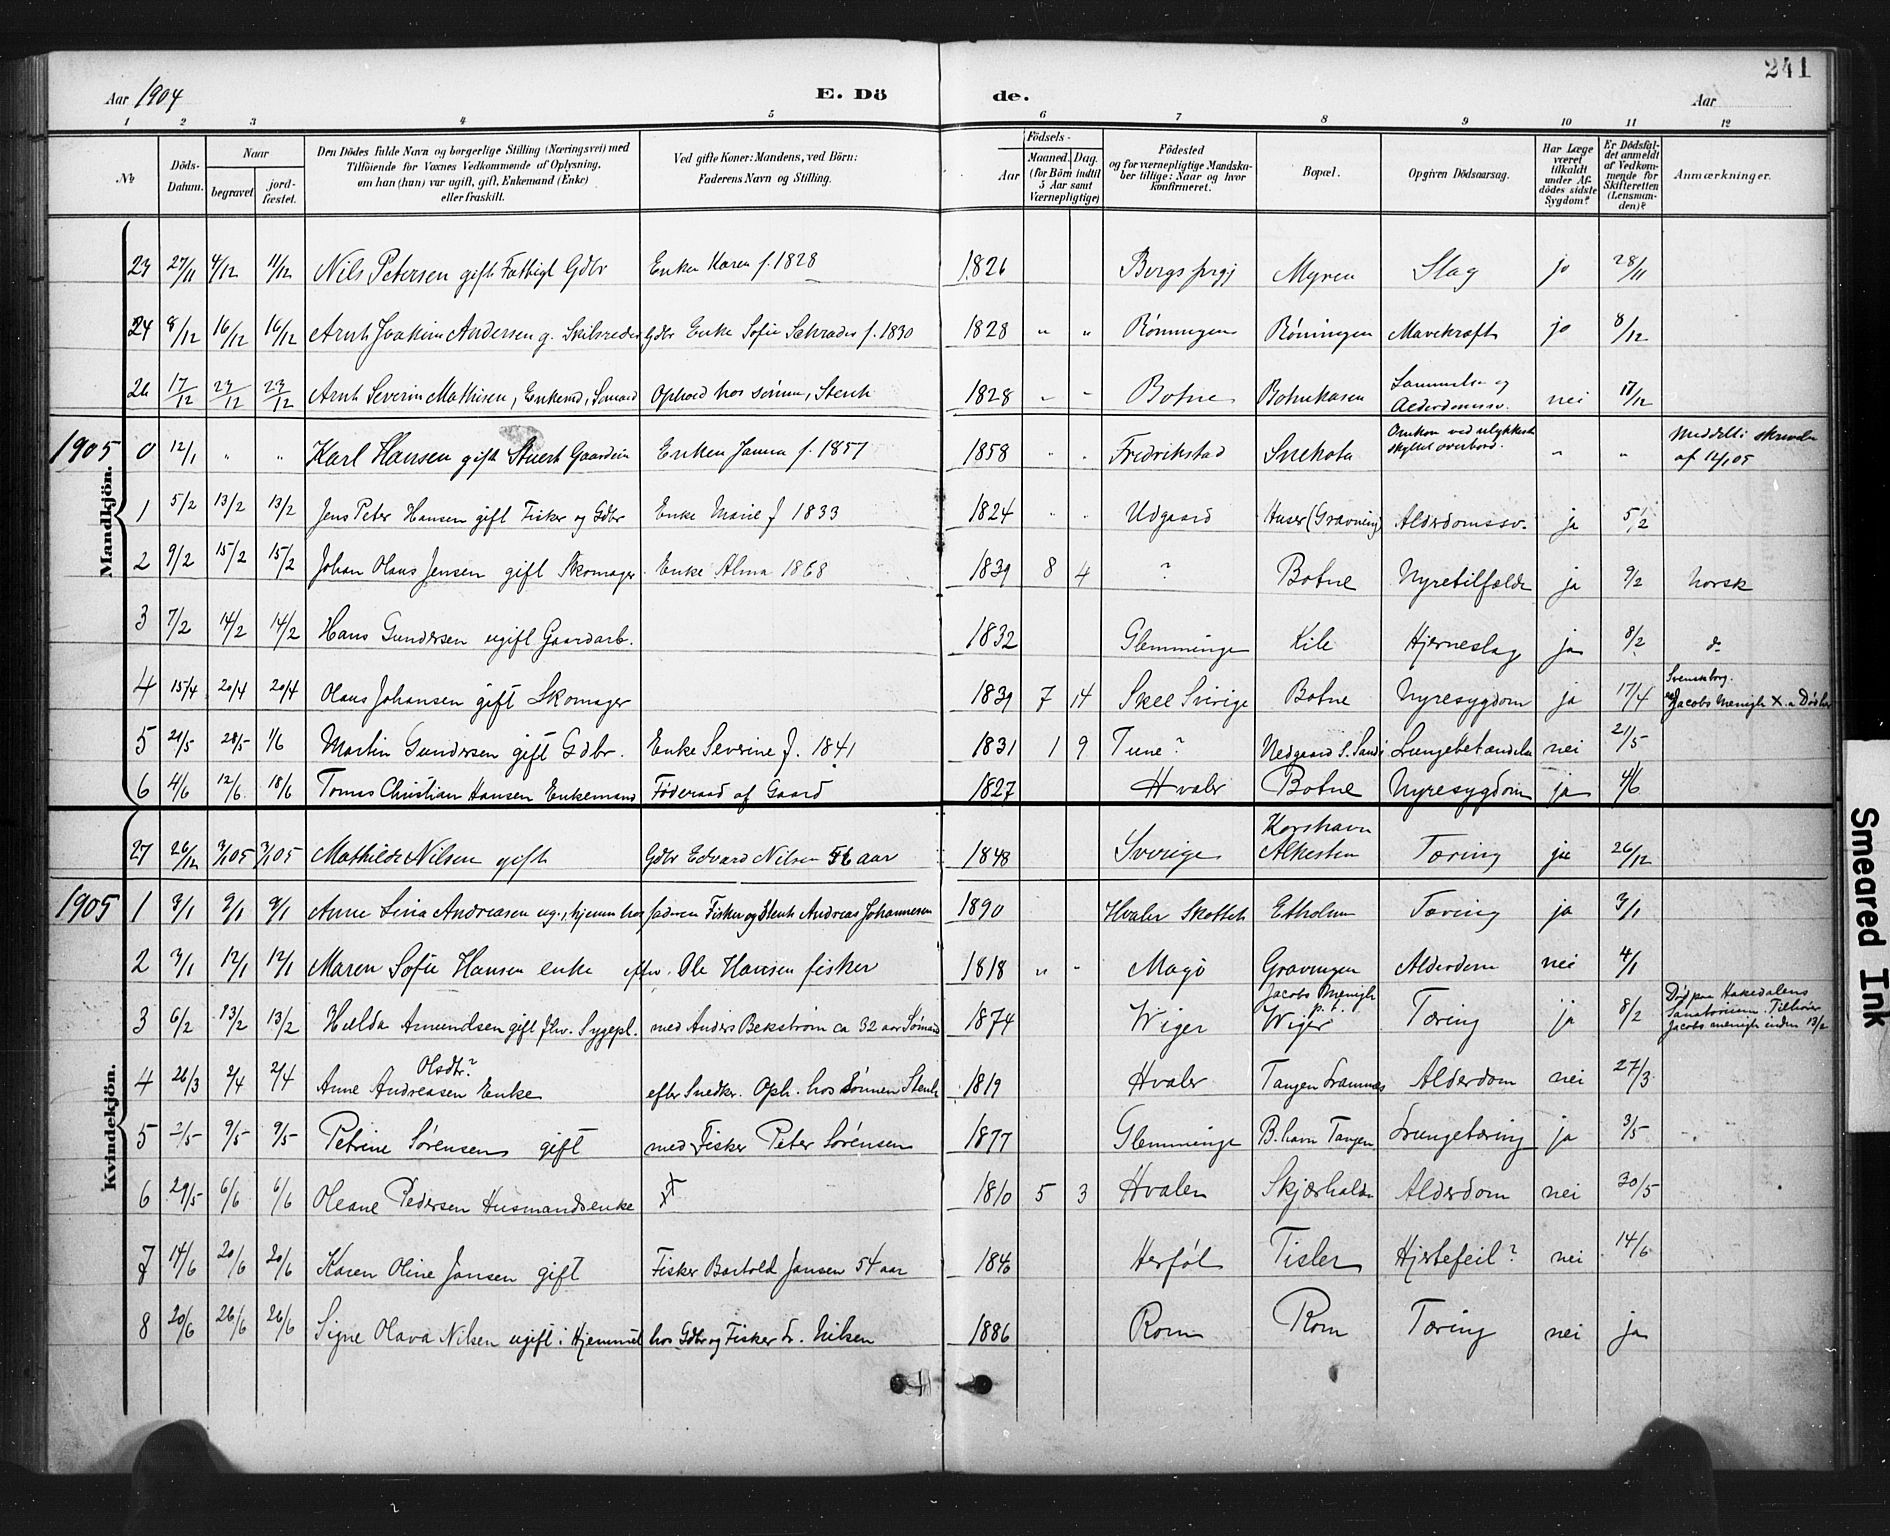 241
Aar 1904 E. Dö de. Aar
1 2 3 4 5 6 7 8 9 10 11 12
№ Döds-Datum. Naar begravet jord-fæstet. Den Dödes fulde Navn og borgerlige Stilling (Næringsvei) med Tilföiende for Voxnes Vedkommende af Oplysning, om han (hun) var ugift, gift, Enkemand (Enke) eller fraskilt. Ved gifte Koner: Mandens, ved Börn: Faderens Navn og Stilling. Födsels- Aar Maaned. Dag. (for Börn indtil 5 Aar samt Værnepligtige) Födested og for værnepligtige Mandska-ber tillige: Naar og hvor konfirmeret. Bopæl. Opgiven Dödsaarsag. Har Læge været tilkaldt under Af-dödes sidste Sygdom? Er Dödsfal-det anmeldt af Vedkom-mende for Skifteretten (Lensman-den)? Anmærkninger.
Mandkjön.
23 27/11 4/12 11/12 Nils Petersen gift Fattigt Gdbr Enken Karen f. 1828 1826 Borgs prgj Myren Slag jo 28/11
24 8/12 16/12 16/12 Arnt Joakim Andersen g. Skibsreder Gdbr Enke Sofie f. 1830 1828 " " Röningen Röningen Mavekræft jo 8/12
26 17/12 23/12 23/12 Arnt Severin Mathisen, Enkemd, Ophold hos sönnen, Stenh 1828 " " Botne Botnekasen og Alderdomssv. nei 17/12
1905 0 12/1 " " Karl Hansen gift Stuert Gaardein Enken f. 1857 1858 " " Fredrikstad Omkom ved ulykkest skyllet overbord. " " Meddelt i skrivelse af 12/1 05
1 5/2 13/2 13/2 Jens Peter Hansen gift Fisker og Gdbr Enke Marie f 1833 1824 " " Udgaard Huser (Gravning) Alderdomssv. ja 5/2
2 9/2 15/2 15/2 Johan Olaus Jensen gift Skomager. Enke Alma 1868 1839 8 4 ? Botne Nyretilfælde ja 9/2 Norsk
3 7/2 14/2 14/2 Hans Gundersen ugift Gaardarb. 1832 Glemminge Kile Hjerneslag ja 8/2 d.
4 15/4 20/4 20/4 Olaus Johansen gift Skomager 1839 7 14 Skee Sverige Botne Nyresygdom ja 17/4 Svenskborg. Jacobs Menigh
5 21/5 28/5 1/6 Martin Gundersen gift Gdbr. Enke Severine f. 1841 1831 1 9 Tune? Nedgaard S. Sandö Lungebetændelse nei 21/5
6 4/6 12/6 18/6 Tomas Christian Hansen Enkemand Föderaad af Gaard 1827 Hvaler Botne Nyresygdom ja 4/6
Kvindekjön.
27 26/12 3/1 05 3/1 05 Mathilde Nilsen gift Gdbr Edvard Nilsen 56 aar 1848 Sverige Korshavn Alkesten Tæring ja 26/12
1905 1 3/1 9/1 9/1 Anne Lina Andreasen ug., hjemme hos faderen Fisker og Stenh Andreas Johannesen 1890 Hvaler Etholmen Tæring ja 3/1
2 3/1 12/1 12/1 Maren Sofie Hansen enke efter Ole Hansen fisker 1818 " " Magö Gravningen Alderdom nei 4/1
3 6/2 13/2 13/2 Hulda Amundsen gift fhv. Sygepl. med Anders Bekström ca 32 aar Sömand 1874 Wiger Jacobs Menigh p.t. Wiger Tæring ja 8/2 Död paa Hakedalens Sanatorium. Tilhörer Jacobs menigh inden 13/2
4 26/3 2/4 2/4 Anne Andreasen Olsdtr.? Enke efter Snedker. Oph. hos Sönnen Stenh 1819 Hvaler Tangen Alderdom nei 27/3
5 2/5 9/5 9/5 Petrine Sörensen gift med Fisker Peter Sörensen 1877 Glemminge B.havn Tangen Lungetæring ja 3/5
6 29/5 6/6 6/6 Oleane Pedersen Husmandsenke 1810 5 3 Hvaler Skjærhalden Alderdom nei 30/5
7 14/6 20/6 20/6 Karen Oline Jansen gift Fisker Bartold Jansen 54 aar 1846 Herföl Tisler Hjertefeil? nei 14/6
8 20/6 26/6 26/6 Signe Olava Nilsen ugift i Hjemmet hos Gdbr og Fisker Nilsen 1886 Rom Rom Tæring nei ja
Smeared Ink